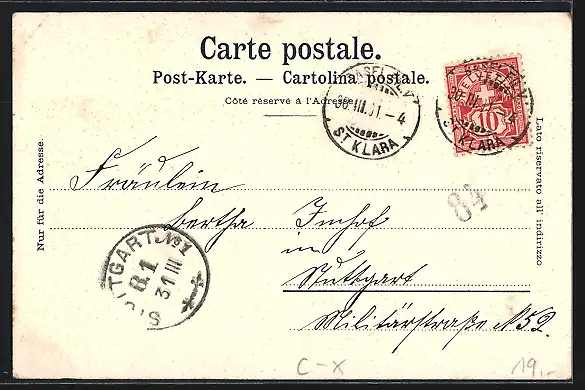 Carte postale.
Post-Karte. — Cartolina postale.
Côté réservé à l'Adresse.
30.III.01.-4
ST KLARA
HELVETIA
10
30.III.01.-4
ST KLARA
Nur für die Adresse.
Lato riservato all' indirizzo
84
Fräulein
bertha Imhof
in
Stuttgart
Militärstraße N 52.
STUTTGART No 1
31 III
C-X
19.-